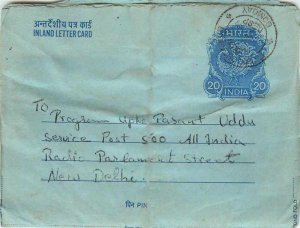 अन्तर्देशीय पत्र कार्ड
INLAND LETTER CARD
भारत
20 INDIA 20
To
Program Upke Pasant Uddu
Service Post 500 All India
Radio Parlament Street
New Delhi.
पिन PIN